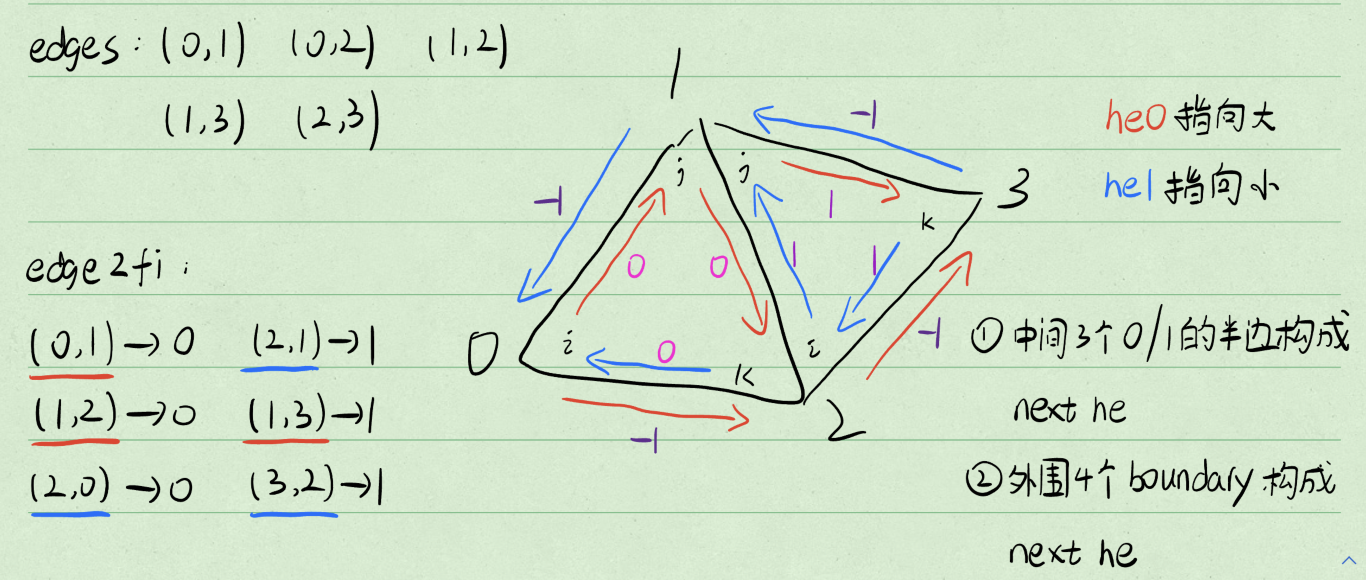 edges: (0,1) (0,2) (1,2)
(1,3) (2,3)
edge2fi:
(0,1)→0 (2,1)→1
(1,2)→0 (1,3)→1
(2,0)→0 (3,2)→1
1
-1
j
j
-1
1
3
k
0
0
1
1
0
i
0
k
i
-1
-1
2
he0 指向大
he1 指向小
①中间3个0/1的半边构成
next he
②外围4个boundary构成
next he